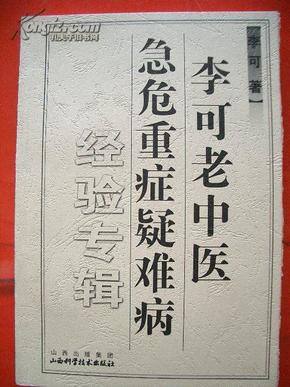 李可 著
李可老中医
急危重症疑难病
经验专辑
山西出版集团
山西科学技术出版社